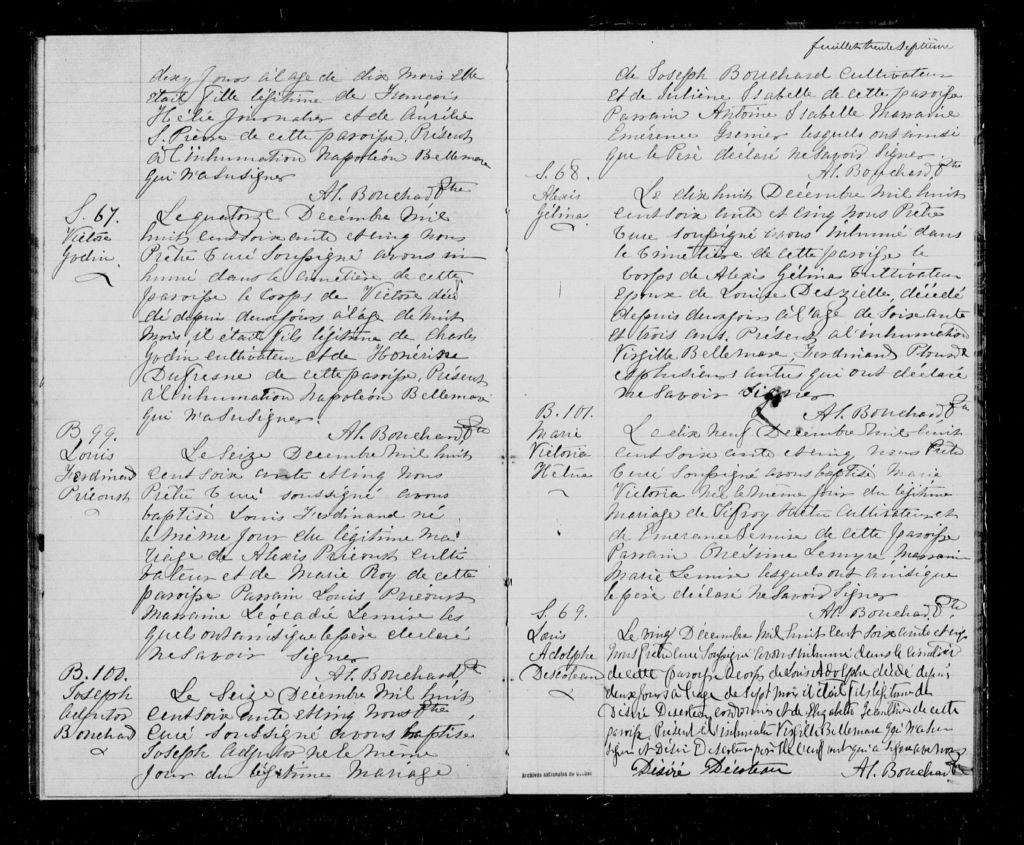 deux jours à l'age de dix mois elle
etait fille légitime de François
Hélie Journalier et de Aurélie
S. Pierre de cette paroisse. Présent
à l'inhumation Napoléon Bellemare
qui n'a su signer
Al. Bouchard Ptre
S. 67.
Victore
Godin
Le quatorze Décembre mil
huit cent soixante et cinq nous
Prêtre Curé soussigné avons in
humé dans le cimetière de cette
paroisse le corps de Victore décé
dé depuis deux jours à l'age de huit
mois, il était fils légitime de Charles
Godin cultivateur et de Honérise
Dufresne de cette paroisse. Présent
à l'inhumation Napoléon Bellemare
qui n'a su signer.
Al. Bouchard Ptre
B. 99.
Louis
Ferdinand
Pricourt
Le Seize Décembre mil huit
cent soixante et cinq nous
Prêtre Curé soussigné avons
baptisé Louis Ferdinand né
le même jour du légitime ma
riage de Alexis Pricourt culti
vateur et de Marie Roy de cette
paroisse Parrain Louis Pricourt
Marraine Léocadie Lemire les
quels ont ainsi que le père déclaré
ne savoir signer
Al. Bouchard Ptre
B. 100.
Joseph
Adjutor
Bouchard
Le Seize Décembre mil huit
cent soixante et cinq nous Ptre
curé soussigné avons baptisé
Joseph Adjutor né le même
jour du légitime mariage
feuillet trente septième
de Joseph Bouchard Cultivateur
et de Julienne Isabelle de cette paroisse
Parrain Antoine Isabelle Marraine
Emérence Grenier lesquels ont ainsi
que le Père déclaré ne savoir signer
Al. Bouchard Ptre
S. 68.
Alexis
Gélina
Le dix huit Décembre mil huit
cent soixante et cinq nous Prêtre
Curé soussigné avons inhumé dans
le Cimetière de cette paroisse le
Corps de Alexis Gélina Cultivateur
Epoux de Louise Deszielle, décédé
depuis deux jours à l'age de soixante
et trois ans. Présent à l'inhumation
Virgille Bellemare, Ferdinand
et plusieurs autres qui ont déclaré
ne savoir signer
Al. Bouchard Ptre
B. 101.
Marie
Victoria
Hétue
Le dix neuf Décembre mil huit
cent soixante et cinq nous Prêtre
Curé soussigné avons baptisé Marie
Victoria née le même jour du légitime
mariage de Hétu Cultivateur et
de Emerance Lemire de cette paroisse
Parrain Onesime Lemyre Marraine
Marie Lemire lesquels ont ainsi que
le père déclaré ne savoir signer
Al. Bouchard Ptre
S. 69.
Louis
Adolphe
Descoteau
Le ving Décembre mil huit cent soixante et cinq
nous Prêtre curé soussigné avons inhumé dans le cimetière
de cette paroisse le corps de Louis Adolphe décédé depuis
deux jours à l'age de sept mois il était fils légitime de
Désiré et de Elizabeth de cette
paroisse Présent à l'inhumation Virgille Bellemare qui n'a su
signer et Désiré
Désiré Décoteau
Al. Bouchard Ptre
Archives nationales du Québec